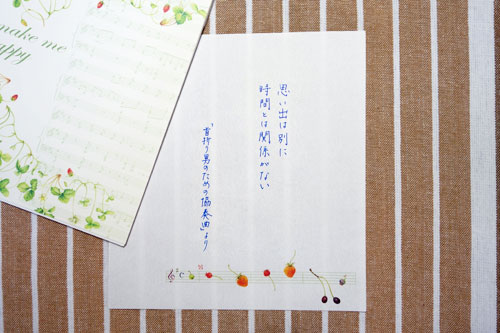 make me
appy
思い出は別に
時間とは関係がない
「首折り男のための協奏曲」より